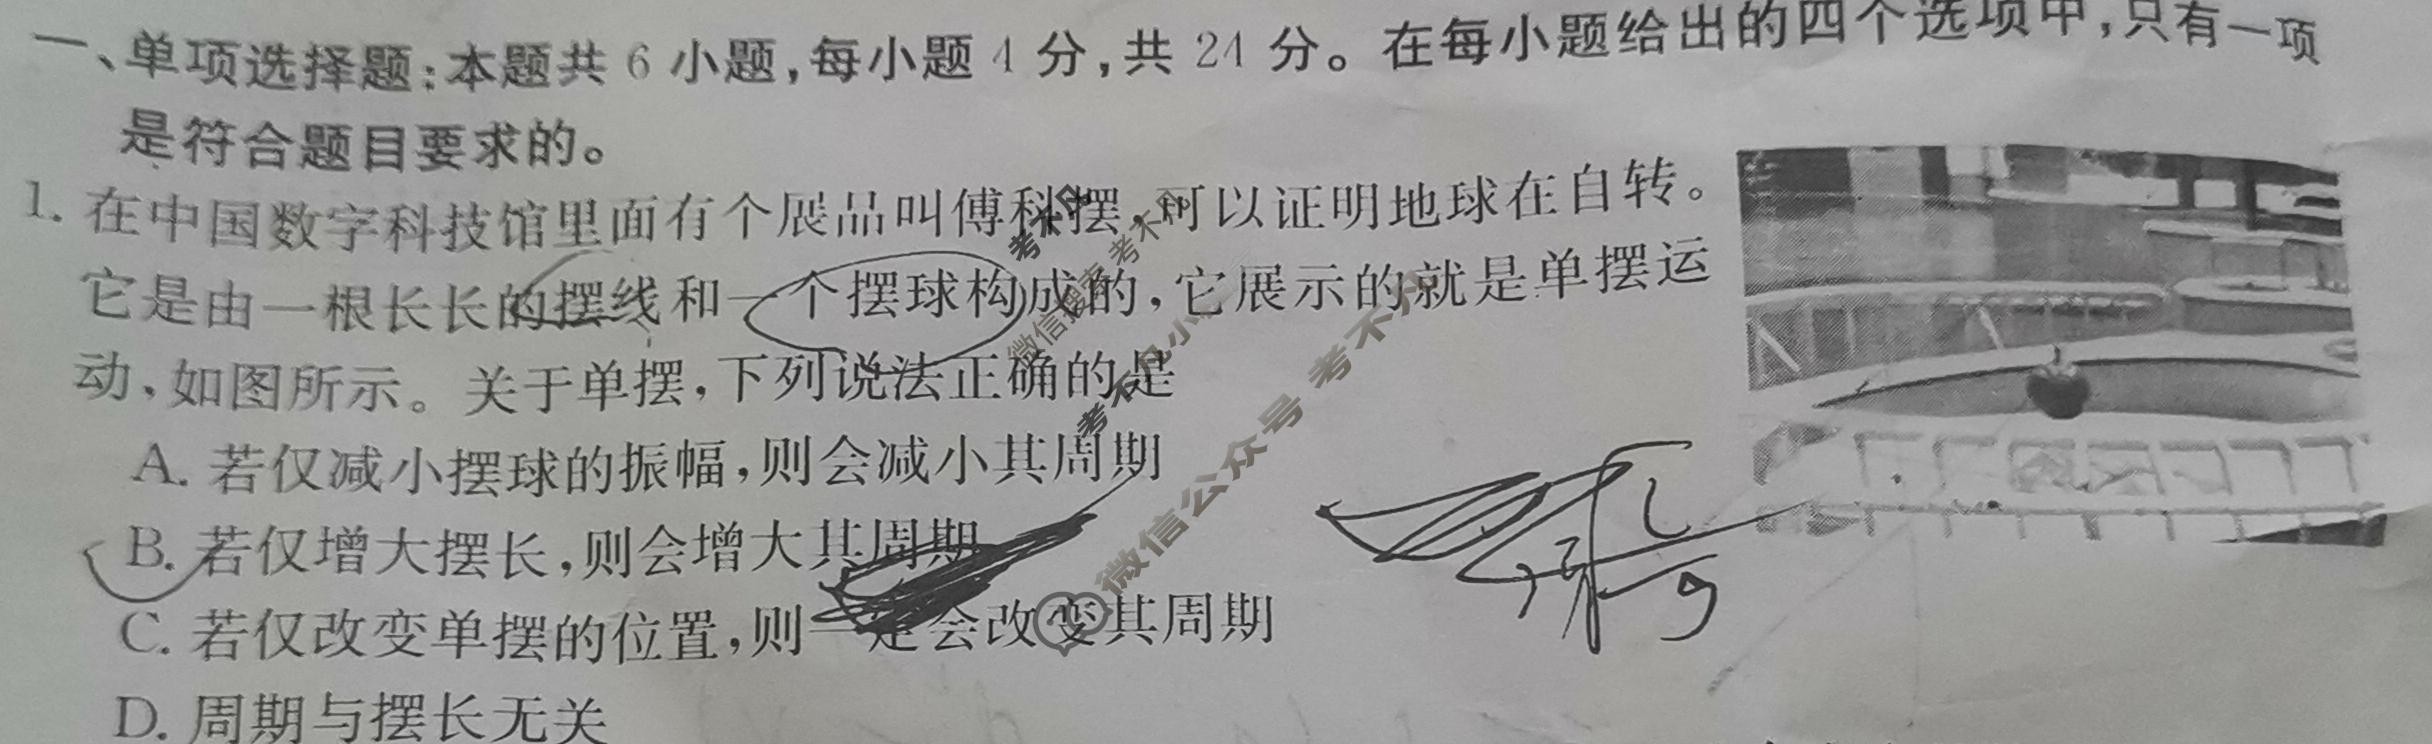 一、单项选择题:本题共 6 小题,每小题 4 分,共 24 分。在每小题给出的四个选项中,只有一项
是符合题目要求的。
1. 在中国数字科技馆里面有个展品叫傅科摆,可以证明地球在自转。
它是由一根长长的摆线和一个摆球构成的,它展示的就是单摆运
动,如图所示。关于单摆,下列说法正确的是
A. 若仅减小摆球的振幅,则会减小其周期
B. 若仅增大摆长,则会增大其周期
C. 若仅改变单摆的位置,则一定会改变其周期
D. 周期与摆长无关
微信搜索 考不凡
考不凡小
微信公众号 考不凡